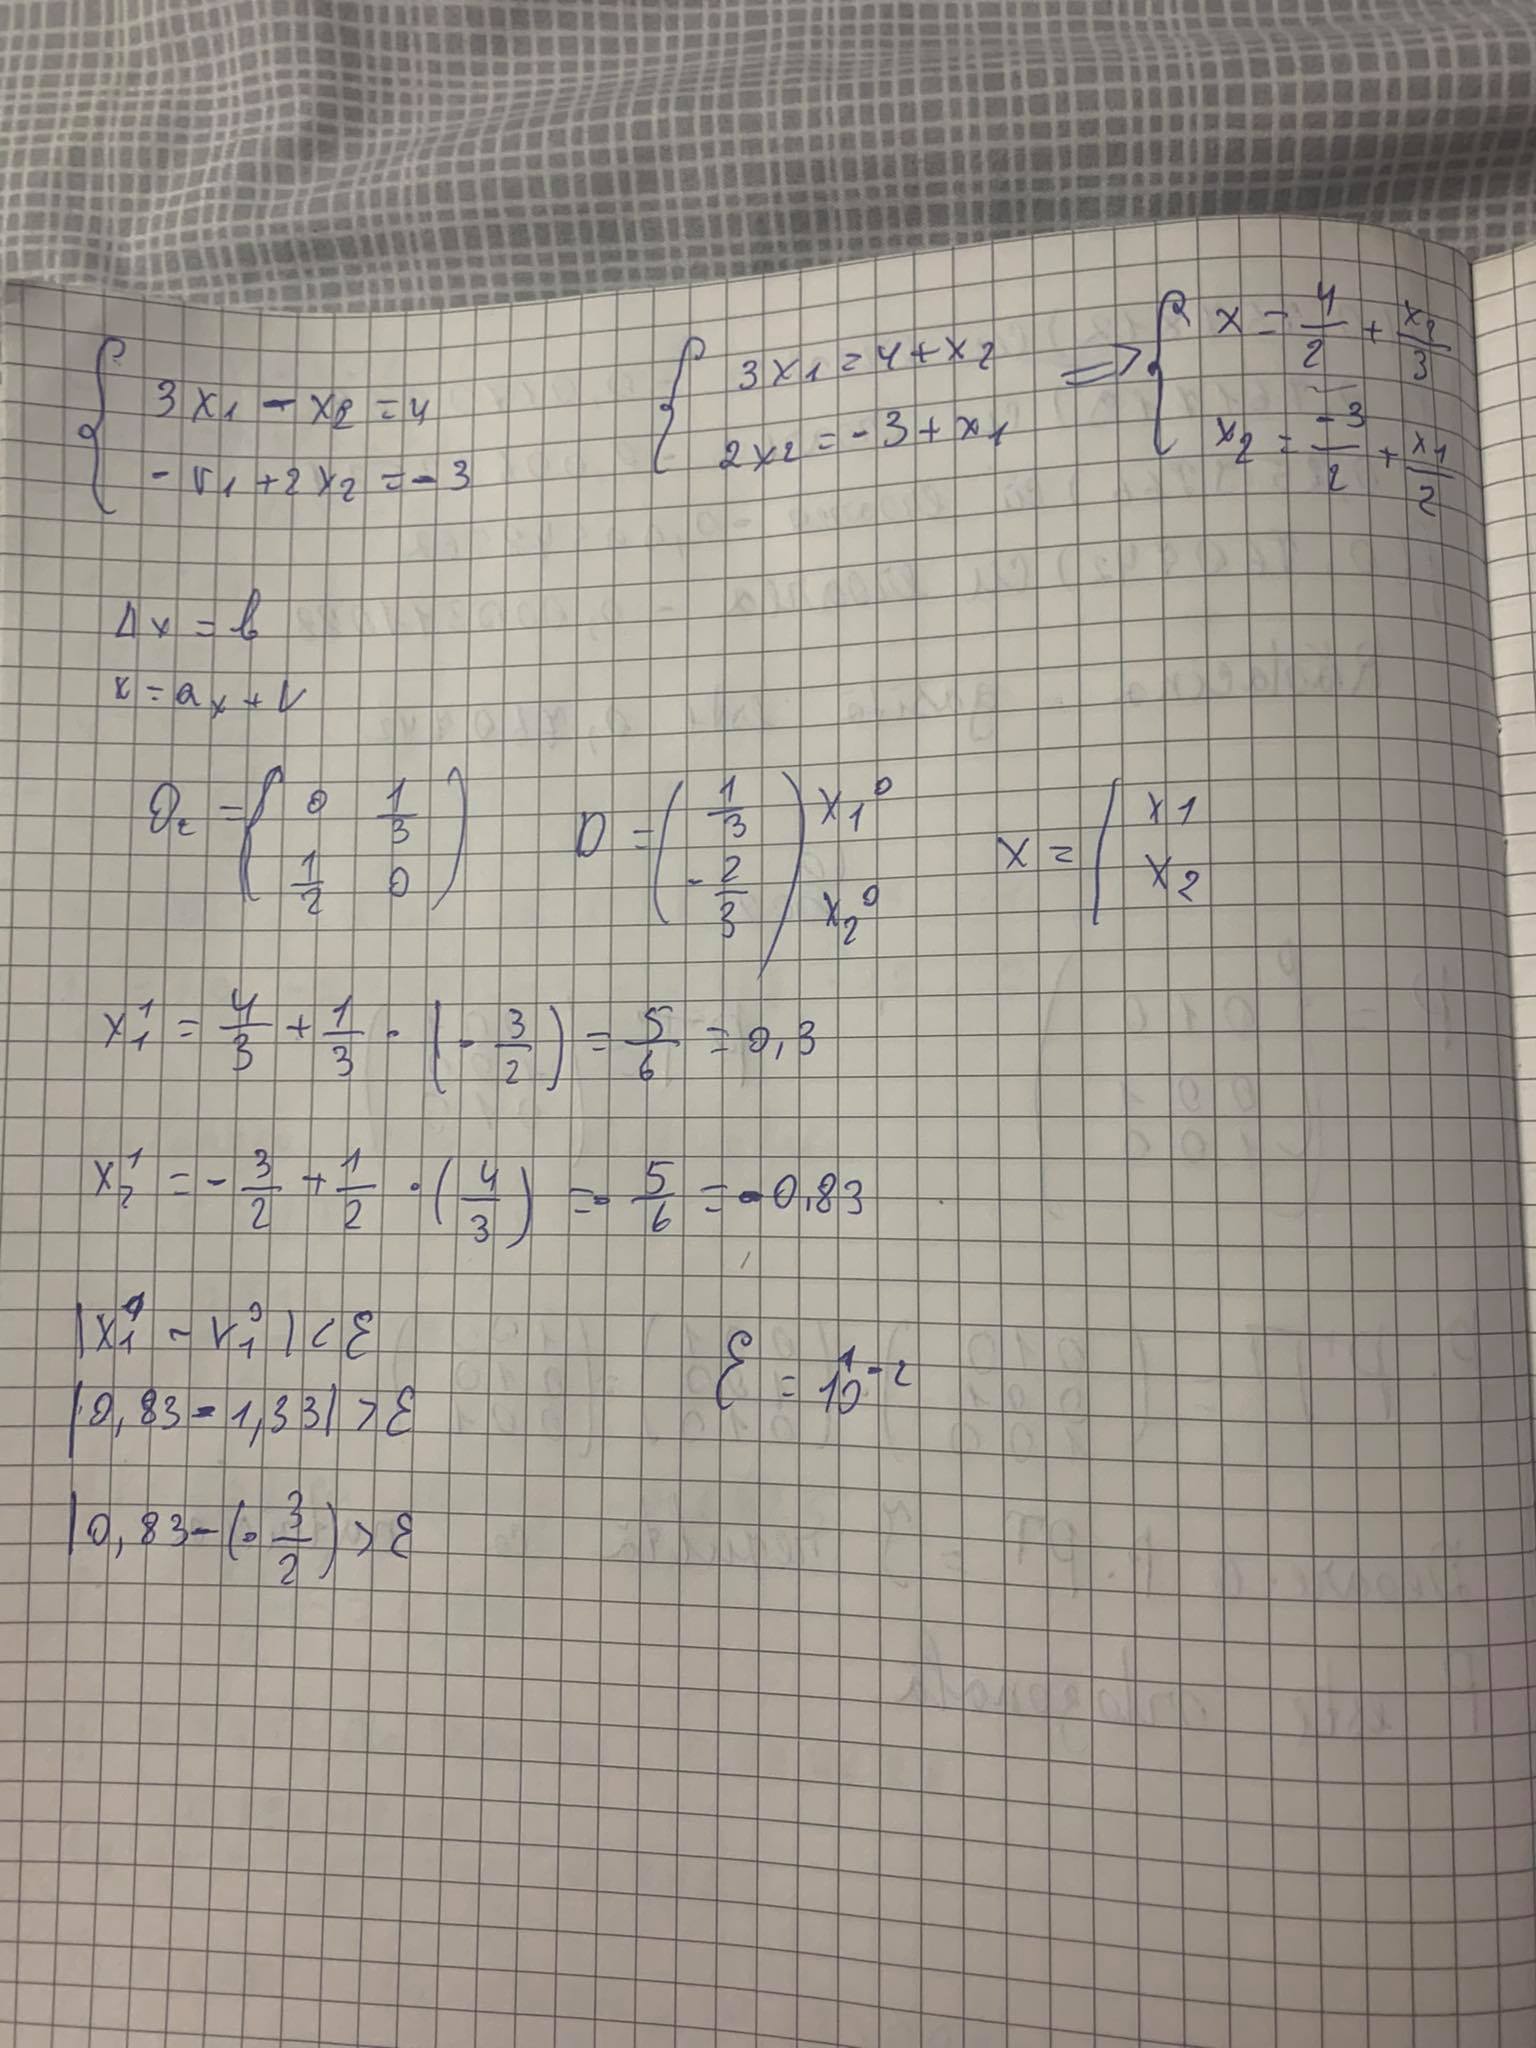 3x1 - x2 = 4
- x1 + 2x2 = - 3
3x1 = 4 + x2
2x2 = - 3 + x1
=>
x = 4/2 + x2/3
x2 = -3/2 + x1/2
Ax = b
x = ax + b
= ( 0 1/3
1/2 0 )
D = ( 1/3
- 2/3 )
x1^0
x2^0
x = ( x1
x2
x1^1 = 4/3 + 1/3 · (- 3/2) = 5/6 = 0,3
x2^1 = - 3/2 + 1/2 · (4/3) = - 5/6 = -0,83
|x1^1 - x1^0| < ε
|0,83 - 1,33| > ε
|0,83 - (- 3/2) > ε
ε = 10^-2